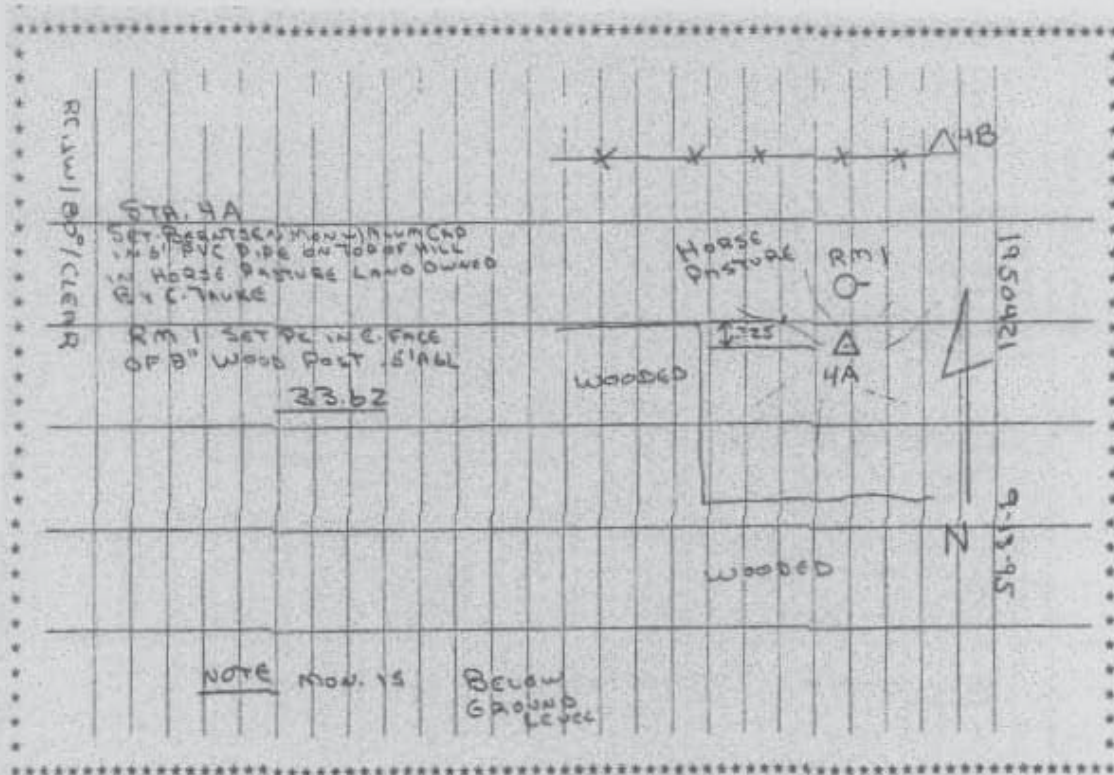 RC, JW / 80° / CLEAR
STA. 4A
SET BERNTSEN MON W/ ALUM CAP
IN 6" PVC PIPE ON TOP OF HILL
IN HORSE PASTURE LAND OWNED
BY C. TAUKE
RM 1 SET PK IN E. FACE
OF 8" WOOD POST .5' AGL
33.62
NOTE MON. IS BELOW
GROUND
LEVEL
4B
HORSE
PASTURE
RM 1
.725'
4A
WOODED
WOODED
N
1950421
9-13-95